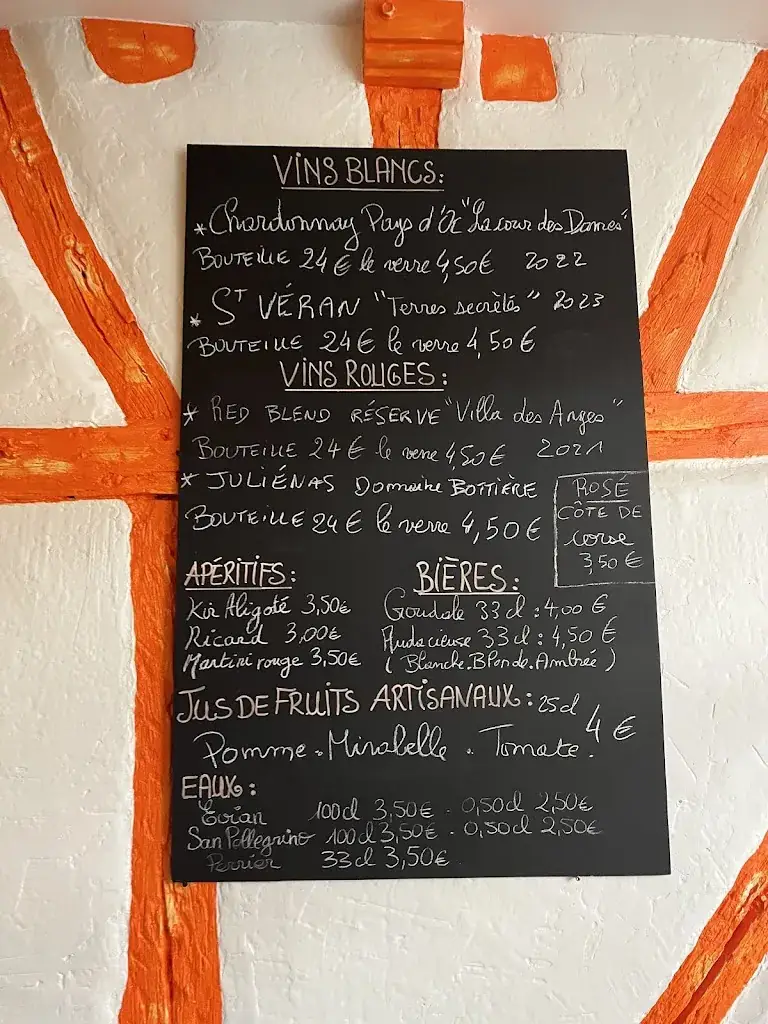 VINS BLANCS:
* Chardonnay Pays d'Oc "La cour des Dames"
BOUTEILLE 24€ le verre 4,50€ 2022
* ST VÉRAN "Terres secrètes" 2023
BOUTEILLE 24€ le verre 4,50€
VINS ROUGES:
* RED BLEND RÉSERVE "Villa des Anges"
BOUTEILLE 24€ le verre 4,50€ 2021
* JULIÉNAS Domaine BOTTIÈRE
BOUTEILLE 24€ le verre 4,50€
ROSÉ
CÔTE DE
corse
3,50€
APÉRITIFS:
Kir Aligoté 3,50€
Ricard 3,00€
Martini rouge 3,50€
BIÈRES:
Goudale 33cl : 4,00€
Audacieuse 33cl : 4,50€
(Blanche.Blonde.Ambrée)
JUS DE FRUITS ARTISANAUX: 25cl
Pomme . Mirabelle . Tomate. 4€
EAUX:
Evian 100cl 3,50€ - 0,50cl 2,50€
San Pellegrino 100cl 3,50€ - 0,50cl 2,50€
Perrier 33cl 3,50€